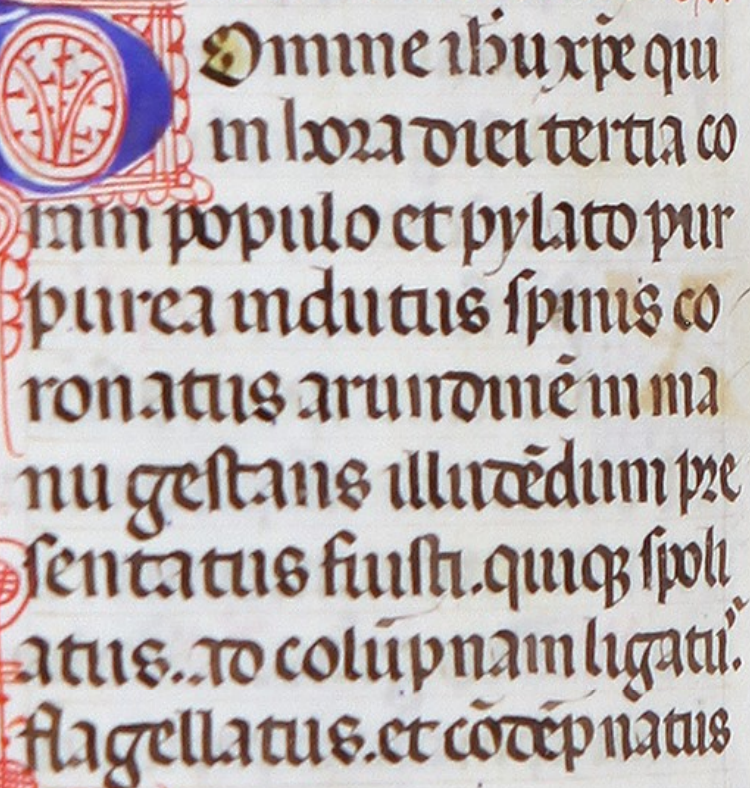 Domine ihu xp̄e qui
in hora diei tertia co
ram populo et pylato pur
purea indutus spinis co
ronatus arundinē in ma
nu gestans illudēdum pre
sentatus fuisti. quiqꝫ spoli
atus. ad colūpnam ligatu᷒.
flagellatus. et cōdēpnatus